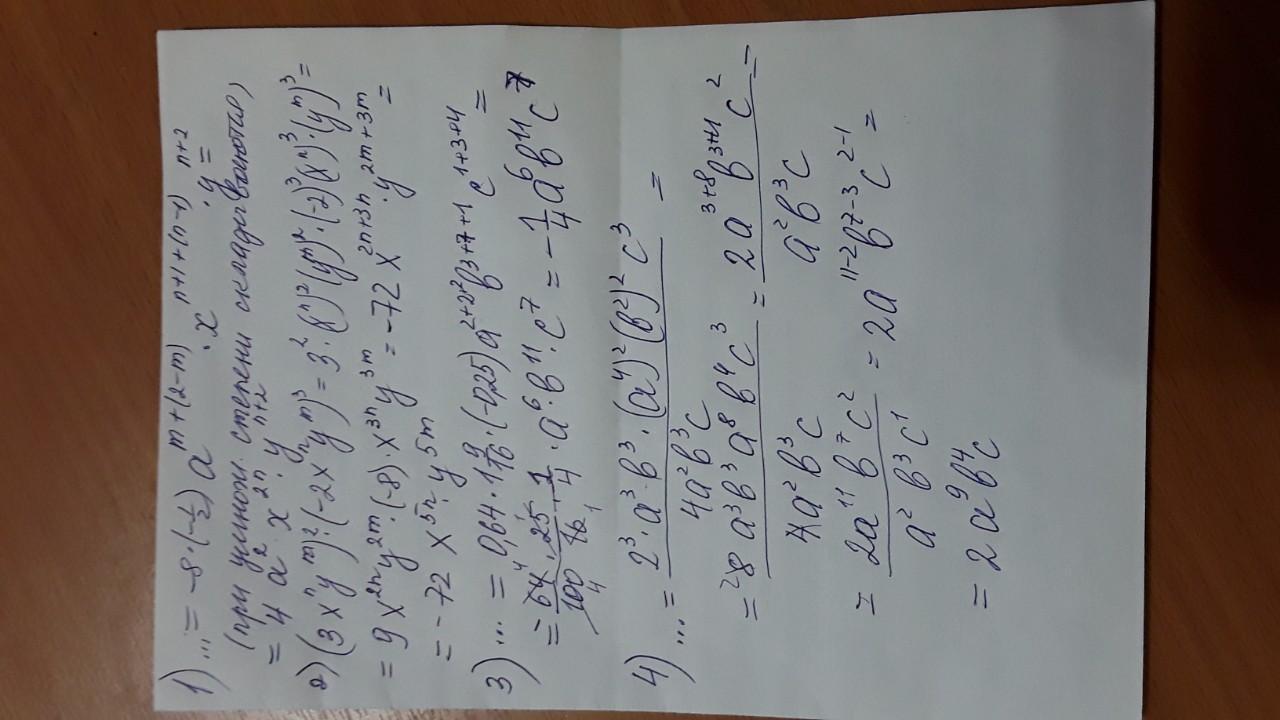 1) ... = -8·(-1/2) a^{m+(2-m)} · x^{n+1+(n-1)} · y^{n+2} =
(при умнож. степени складываются)
= 4 a^2 x^{2n} · y^{n+2}
2) (3x^n y^m)^2 · (-2x^n y^m)^3 = 3^2 · (x^n)^2 (y^m)^2 · (-2)^3 (x^n)^3 · (y^m)^3 =
= 9 x^{2n} y^{2m} · (-8) · x^{3n} y^{3m} = -72 x^{2n+3n} · y^{2m+3m} =
= -72 x^{5n} · y^{5m}
3) ... = 0,64 · 1 9/16 · (-0,25) a^{2+2+2} b^{3+7+1} c^{1+3+4} =
= - 64/100 · 25/16 · 1/4 · a^6 · b^{11} · c^7 = - 1/4 a^6 b^{11} c^7
4) ... = 2^3 · a^3 · b^3 · (a^4)^2 (b^2)^2 c^3 / 4a^2 b^3 c =
= 8 a^3 b^3 a^8 b^4 c^3 / 4a^2 b^3 c = 2a^{3+8} b^{3+4} c^2 / a^2 b^3 c =
= 2a^{11} b^7 c^2 / a^2 b^3 c^1 = 2a^{11-2} b^{7-3} c^{2-1} =
= 2 a^9 b^4 c